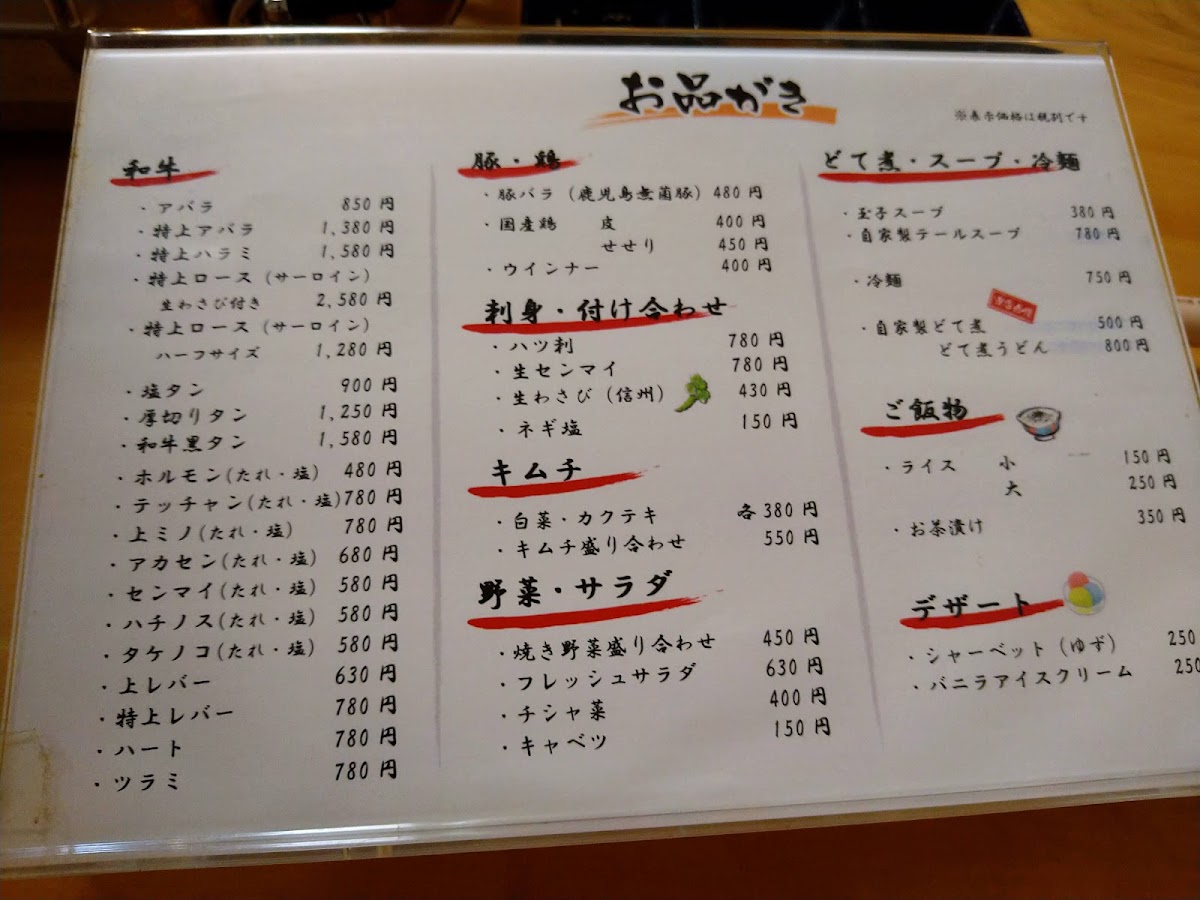 お品がき
※表示価格は税別です
和牛
・アバラ 850円
・特上アバラ 1,380円
・特上ハラミ 1,580円
・特上ロース (サーロイン)
生わさび付き 2,580円
・特上ロース (サーロイン)
ハーフサイズ 1,280円
・塩タン 900円
・厚切りタン 1,250円
・和牛黒タン 1,580円
・ホルモン(たれ・塩) 480円
・テッチャン(たれ・塩) 780円
・上ミノ(たれ・塩) 780円
・アカセン(たれ・塩) 680円
・センマイ(たれ・塩) 580円
・ハチノス(たれ・塩) 580円
・タケノコ(たれ・塩) 580円
・上レバー 630円
・特上レバー 780円
・ハート 780円
・ツラミ 780円
豚・鶏
・豚バラ (鹿児島無菌豚) 480円
・国産鶏 皮 400円
せせり 450円
・ウインナー 400円
刺身・付け合わせ
・ハツ刺 780円
・生センマイ 780円
・生わさび (信州) 430円
・ネギ塩 150円
キムチ
・白菜・カクテキ 各380円
・キムチ盛り合わせ 550円
野菜・サラダ
・焼き野菜盛り合わせ 450円
・フレッシュサラダ 630円
・チシャ菜 400円
・キャベツ 150円
どて煮・スープ・冷麺
・玉子スープ 380円
・自家製テールスープ 780円
・冷麺 750円
・自家製どて煮 500円
どて煮うどん 800円
ご飯物
・ライス 小 150円
大 250円
・お茶漬け 350円
デザート
・シャーベット (ゆず) 250
・バニラアイスクリーム 250